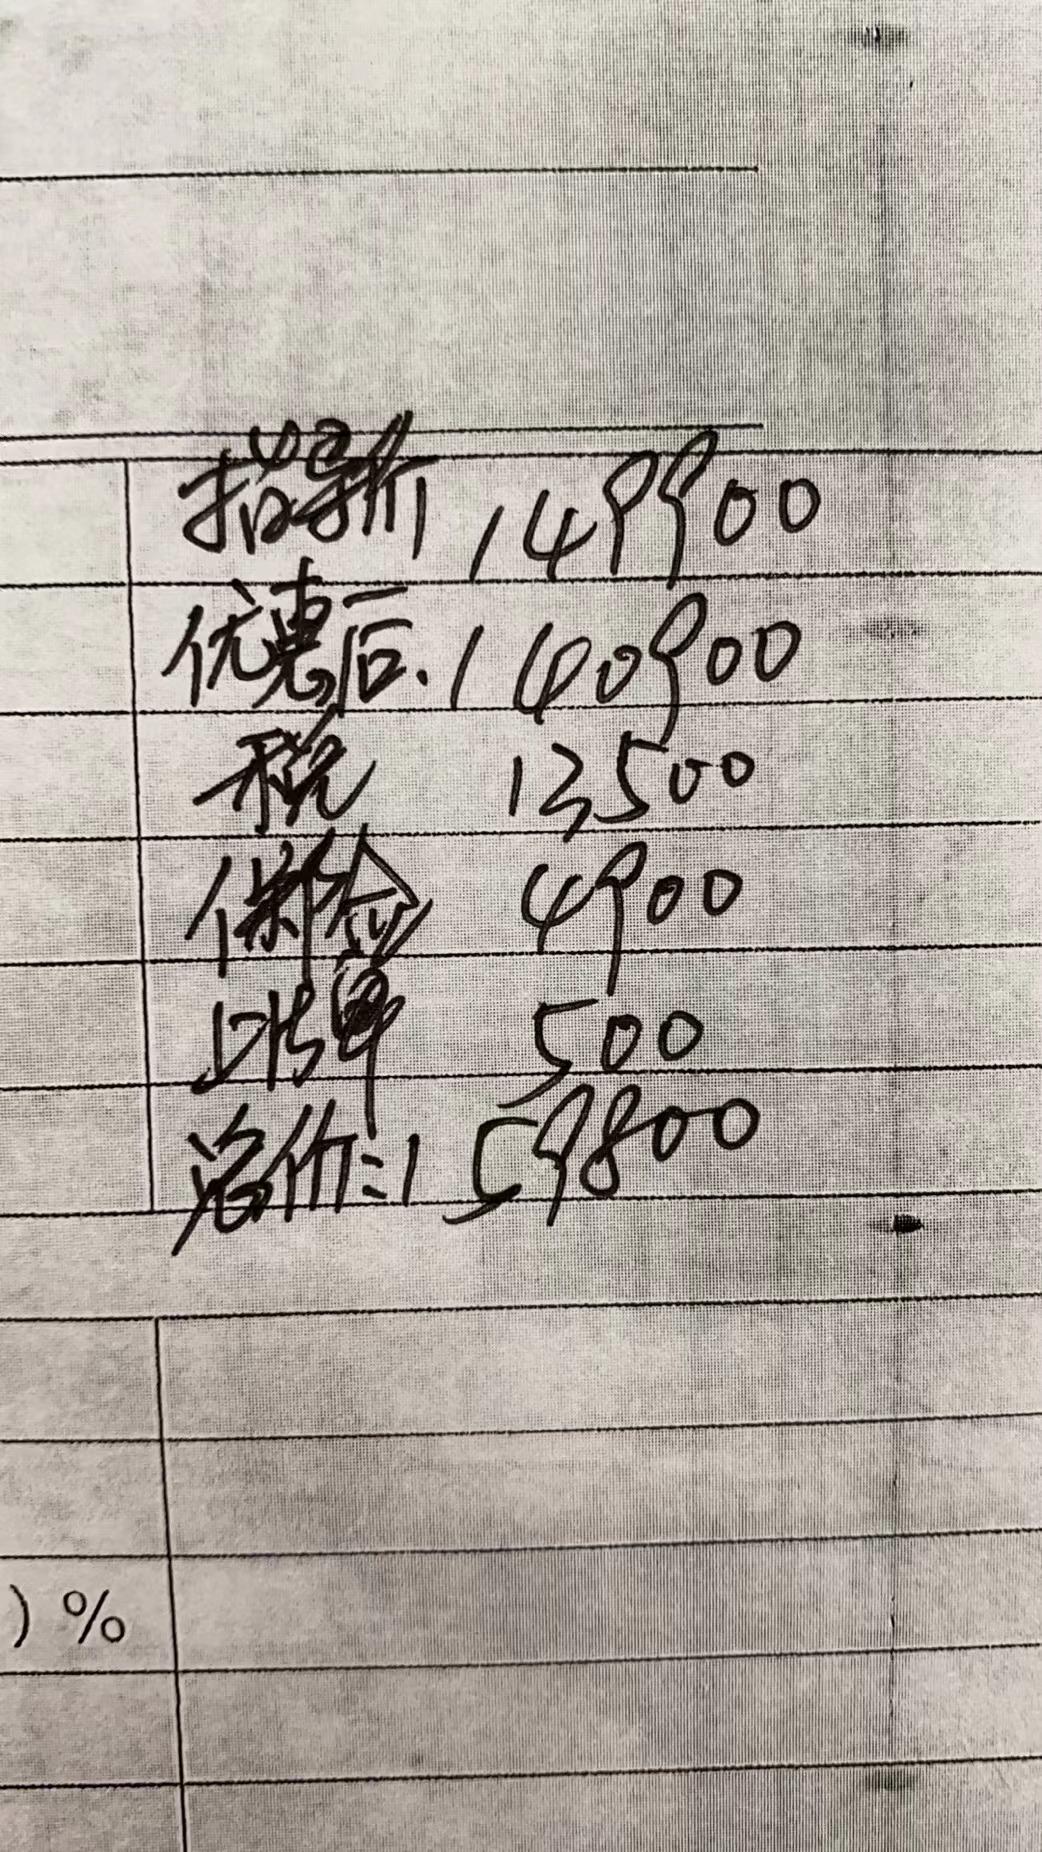 指导价 149900
优惠后. 140900
税 13500
保险 4900
上牌 500
总价:159800
) %